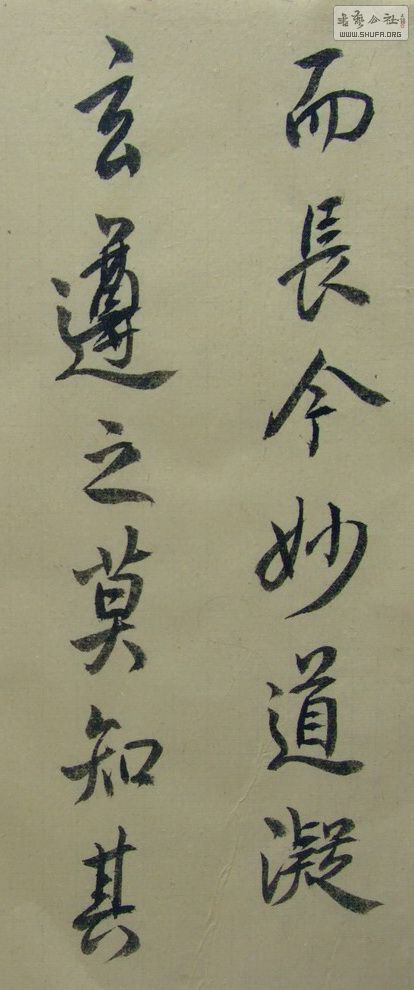 而長今妙道凝
玄遵之莫知其
書藝公社
WWW.SHUFA.ORG